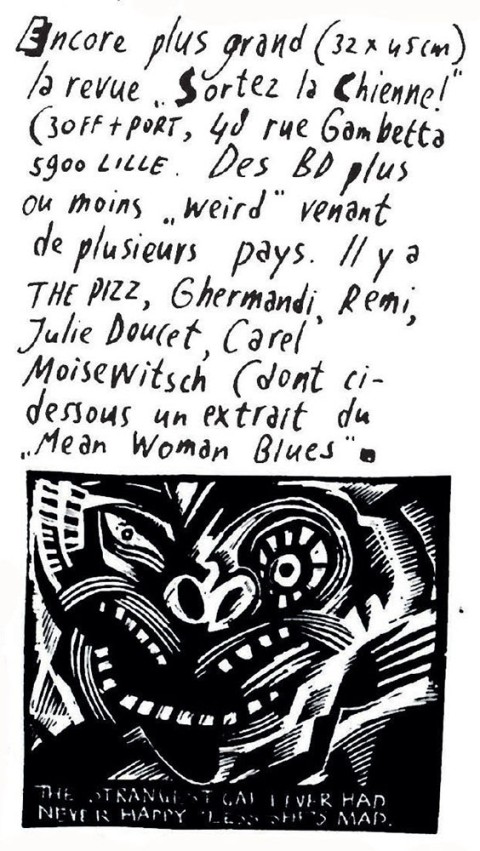 Encore plus grand (32 x 45cm)
la revue „Sortez la Chienne!"
(30FF + PORT, 48 rue Gambetta
5900 LILLE. Des BD plus
ou moins „weird" venant
de plusieurs pays. Il y a
THE PIZZ, Ghermandi, Remi,
Julie Doucet, Carel
Moisewitsch (dont ci-
dessous un extrait du
„Mean Woman Blues".
THE STRANGEST GAL I EVER HAD
NEVER HAPPY 'LESS SHE'S MAD.